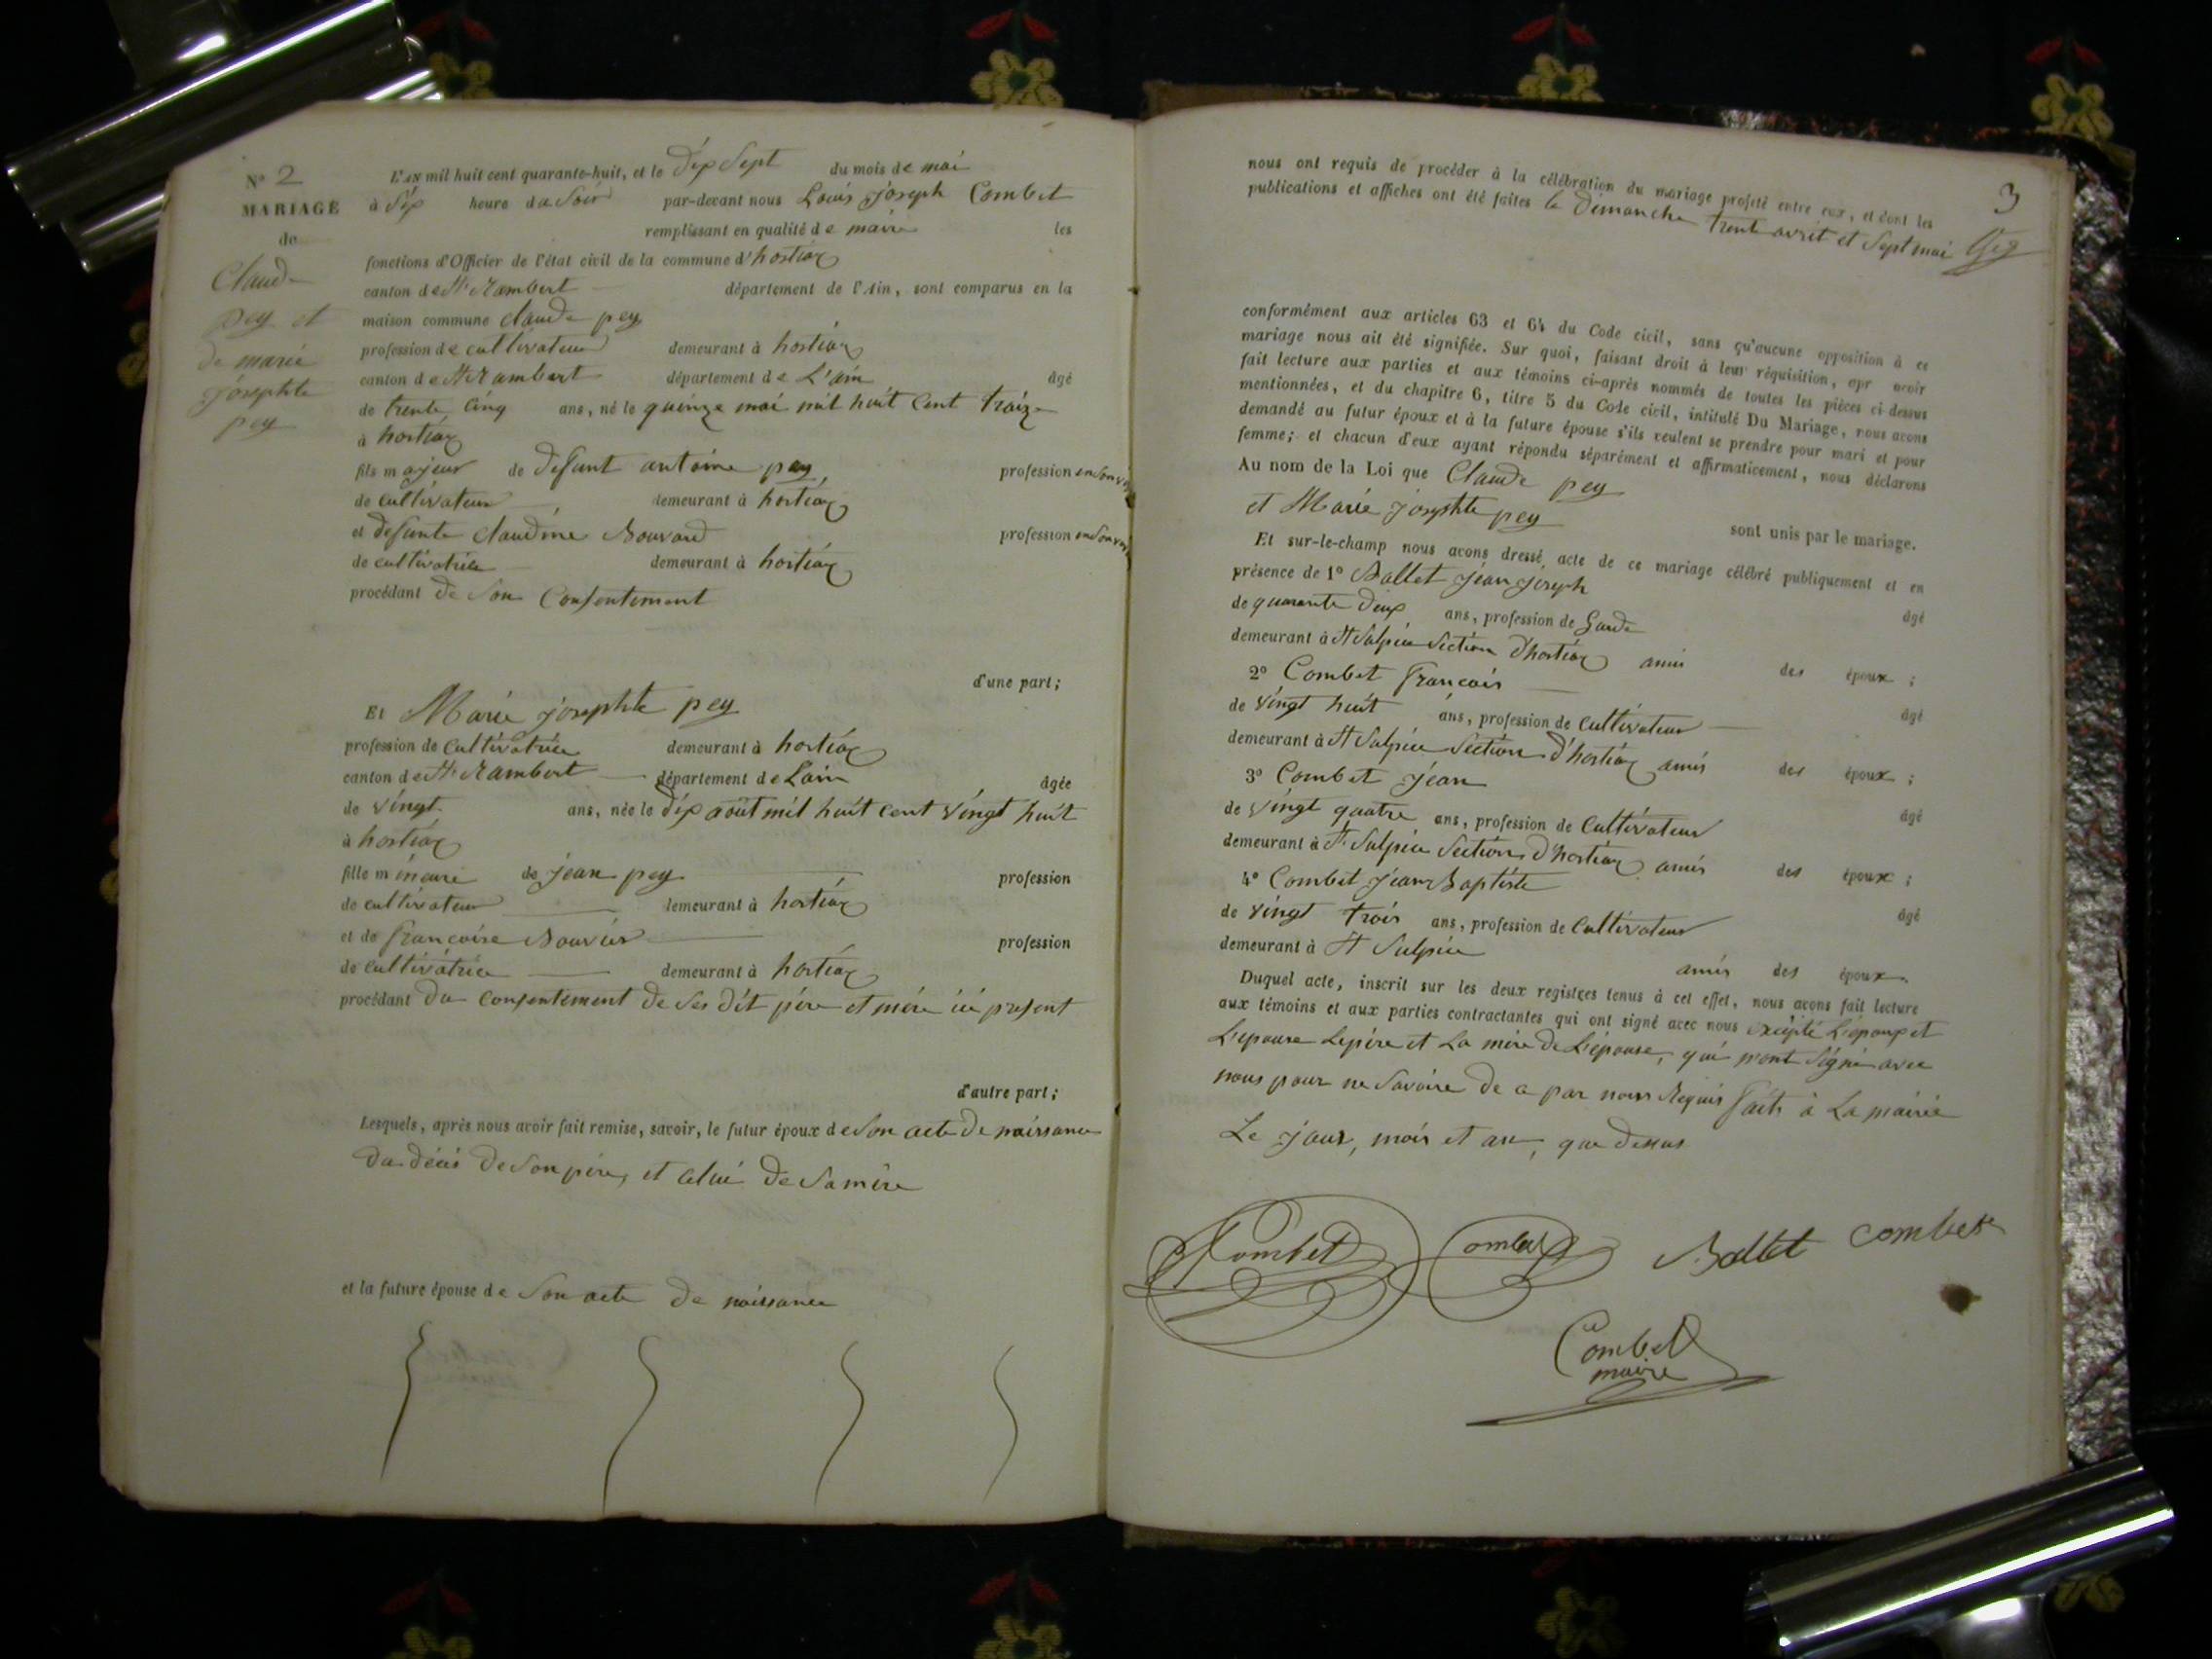 N° 2
MARIAGE
de
Claude
pey et
de marie
josephte
pey
L'AN mil huit cent quarante-huit, et le dix Sept du mois de mai
à Six heure du Soir par-devant nous Louis joseph Combet
remplissant en qualité de maire les
fonctions d'Officier de l'état civil de la commune d'hostiaz
canton de St Rambert département de l'Ain, sont comparus en la
maison commune claude pey
profession de cultivateur demeurant à hostiaz
canton de St Rambert département de L'ain âgé
de trente cinq ans, né le quinze mai mil huit cent traize
à hostiaz
fils majeur de defunt antoine pey, profession en Son viv
de cultivateur demeurant à hostiaz
et defunte claudine Bouvard profession en Son viv
de cultivatrice demeurant à hostiaz
procédant de Son Consentement
d'une part;
Et Marie josephte pey
profession de cultivatrice demeurant à hostiaz
canton de St Rambert département de Lain âgée
de vingt ans, née le dix août mil huit cent vingt huit
à hostiaz
fille mineure de jean pey profession
de cultivateur demeurant à hostiaz
et de francoise Bouvier profession
de cultivatrice demeurant à hostiaz
procédant du consentement de Ses dit père et mère ici present
d'autre part;
Lesquels, après nous avoir fait remise, savoir, le futur époux de Son acte de naissance
du décès de Son père, et celui de Sa mère
et la future épouse de Son acte de naissance
3
nous ont requis de procéder à la célébration du mariage projeté entre eux, et dont les
publications et affiches ont été faites le dimanche trente avril et Sept mai
conformément aux articles 63 et 64 du Code civil, sans qu'aucune opposition à ce
mariage nous ait été signifiée. Sur quoi, faisant droit à leur réquisition, apr avoir
fait lecture aux parties et aux témoins ci-après nommés de toutes les pièces ci-dessus
mentionnées, et du chapitre 6, titre 5 du Code civil, intitulé Du Mariage, nous avons
demandé au futur époux et à la future épouse s'ils veulent se prendre pour mari et pour
femme; et chacun d'eux ayant répondu séparément et affirmativement, nous déclarons
Au nom de la Loi que Claude pey
et Marie josephte pey sont unis par le mariage.
Et sur-le-champ nous avons dressé acte de ce mariage célébré publiquement et en
présence de 1° Ballet jean joseph âgé
de quarante deux ans, profession de Garde
demeurant à St Sulpice Section d'hostiaz amis des époux ;
2° Combet francois âgé
de vingt huit ans, profession de cultivateur
demeurant à St Sulpice Section d'hostiaz amis des époux ;
3° Combet jean âgé
de vingt quatre ans, profession de Cultivateur
demeurant à St Sulpice Section d'hostiaz amis des époux ;
4° Combet jean Baptiste âgé
de vingt trois ans, profession de Cultivateur
demeurant à St Sulpice amis des époux.
Duquel acte, inscrit sur les deux registres tenus à cet effet, nous avons fait lecture
aux témoins et aux parties contractantes qui ont signé avec nous excepté L'époux et
L'épouse Le père et La mère de L'épouse, qui n'ont Signé avec
nous pour ne Savoire de ce par nous Requis fait à La mairie
Le jour, mois et an, que dessus
Combet Combet Ballet Combet
Combet
maire